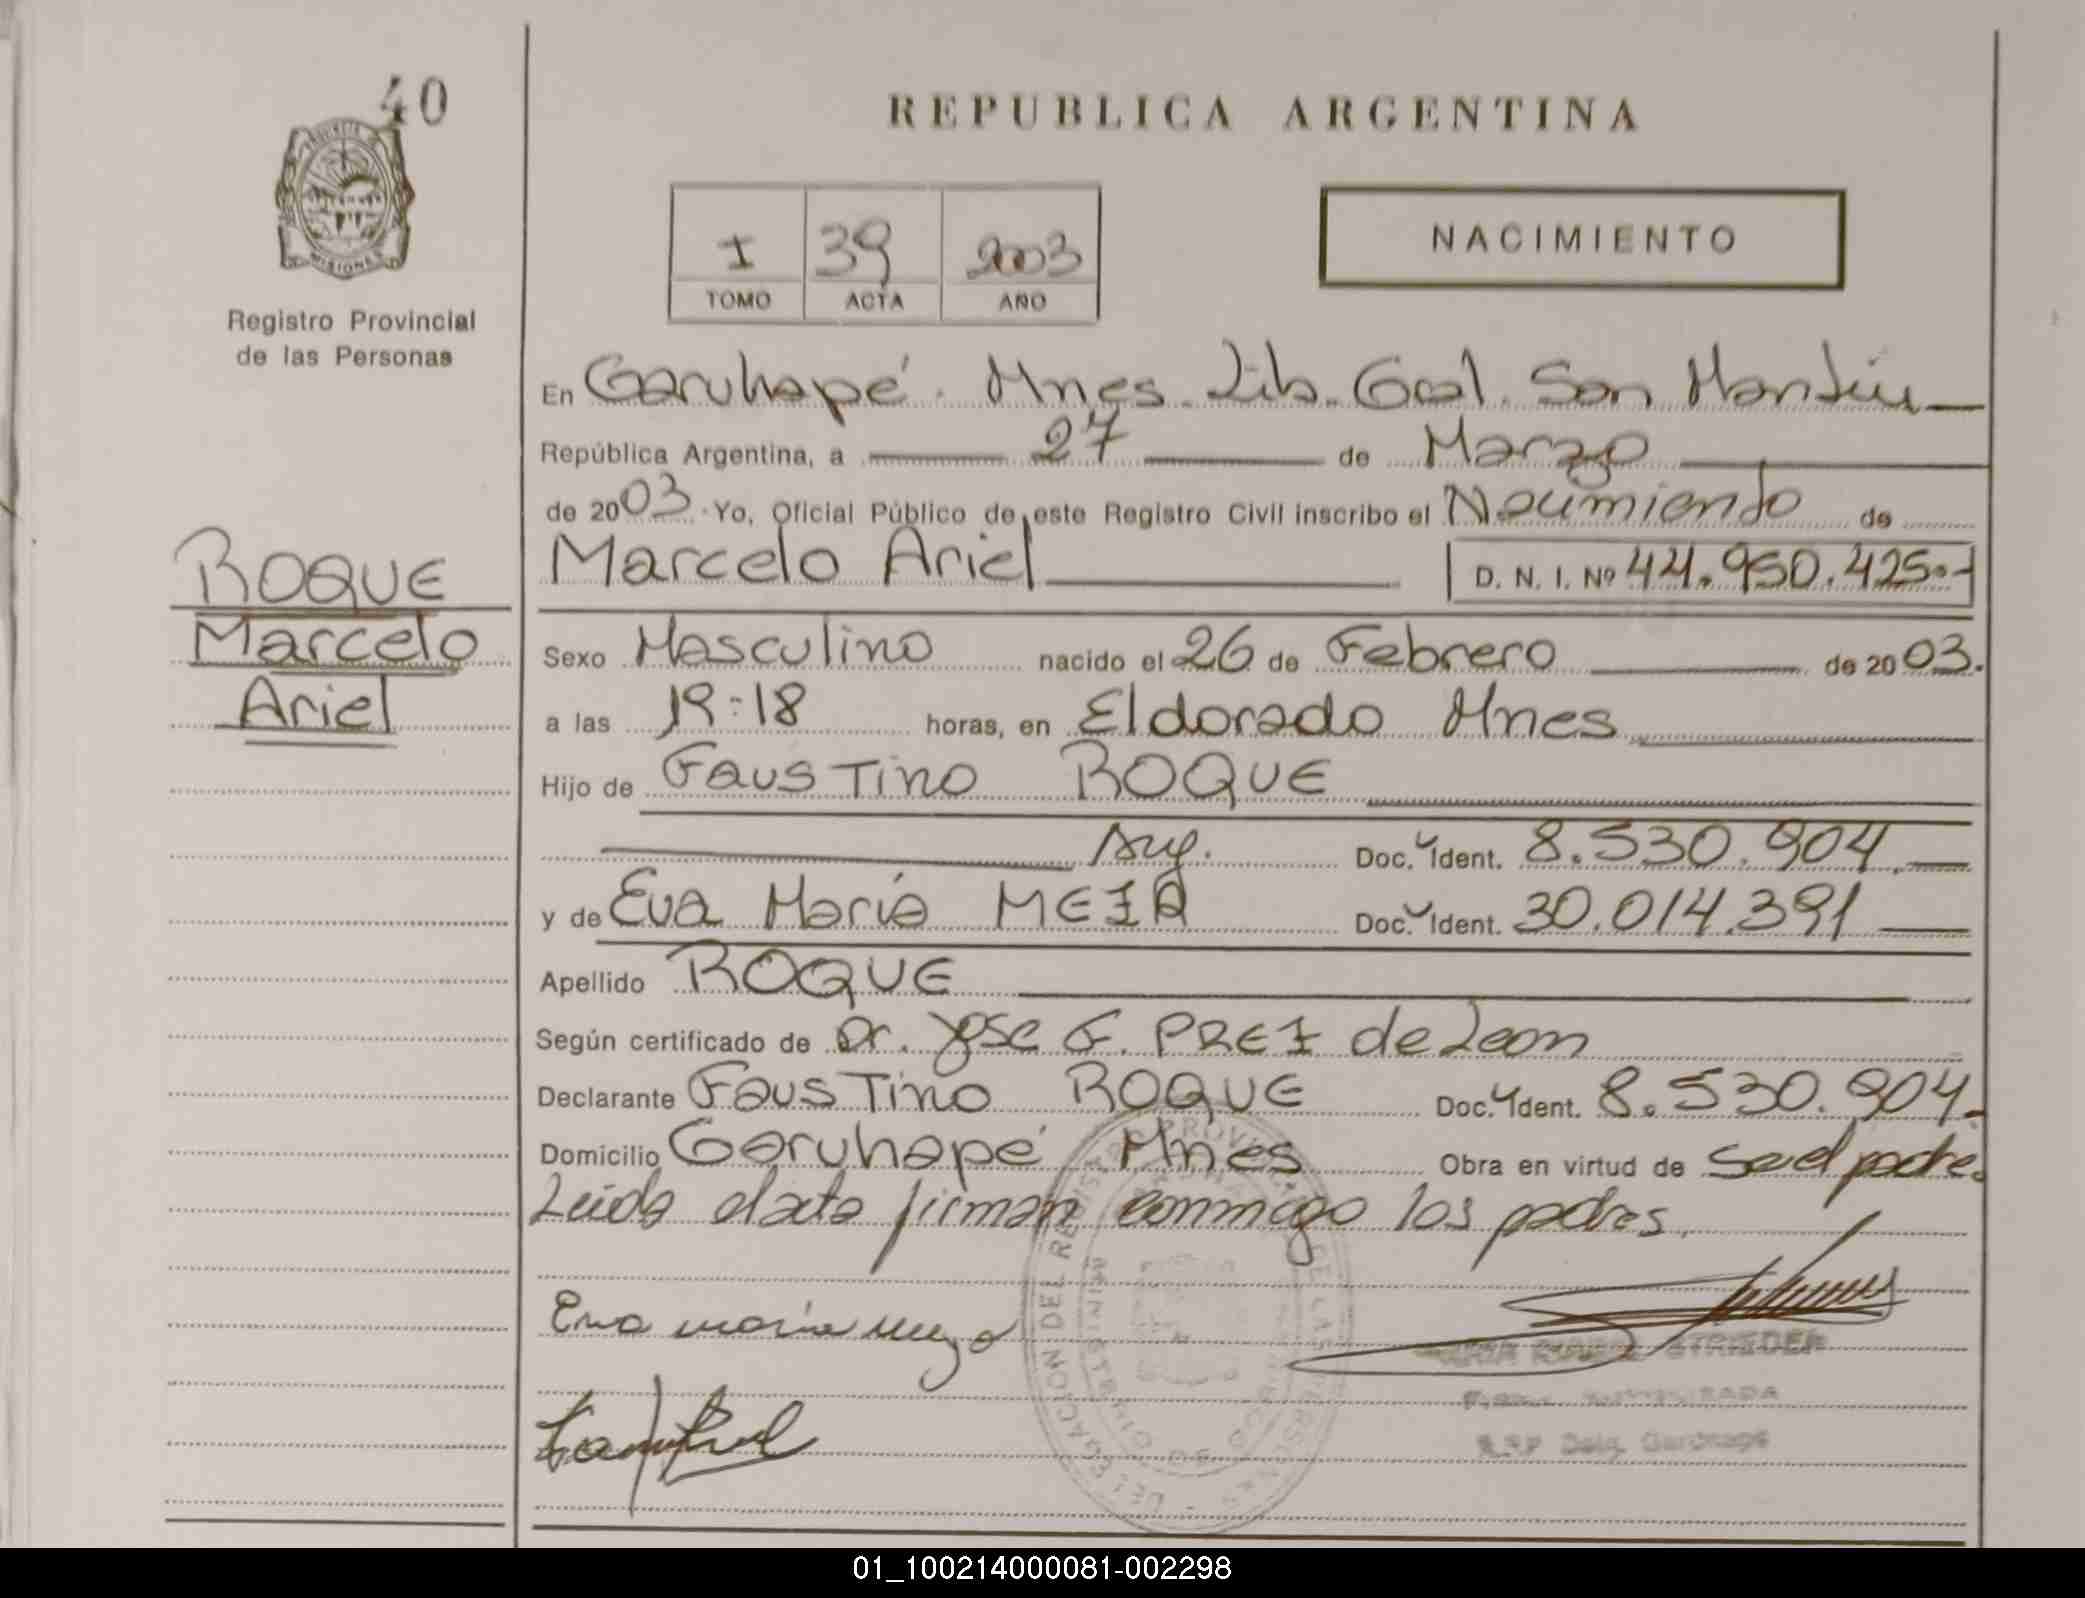 40
REPUBLICA ARGENTINA
PROVINCIA
MISIONES
Registro Provincial
de las Personas
I 39 2003
TOMO ACTA AÑO
NACIMIENTO
En Garuhapé. Mnes. Lib. Gral. San Martín
República Argentina, a 27 de Marzo
de 2003. Yo, Oficial Público de este Registro Civil inscribo el Nacimiento de
Marcelo Ariel D. N. I. Nº 44.950.425.-
ROQUE
Marcelo
Ariel
Sexo Masculino nacido el 26 de Febrero de 2003.
a las 19:18 horas, en Eldorado Mnes
Hijo de Faustino ROQUE
Arg. Doc. Ident. 8.530.904.
y de Eva María Doc. Ident. 30.014.391
Apellido ROQUE
Según certificado de Dr. Jose F. de Leon
Declarante Faustino ROQUE Doc. Ident. 8.530.904.-
Domicilio Garuhapé Mnes Obra en virtud de ser el padre.
Leída el acta firman conmigo los padres.
Eva maría
STRIEDER
R.P.P Deleg. Garuhapé
DELEGACION DEL REGISTRO PROVINCIAL DE LAS PERSONAS
MINISTERIO DE
01_100214000081-002298